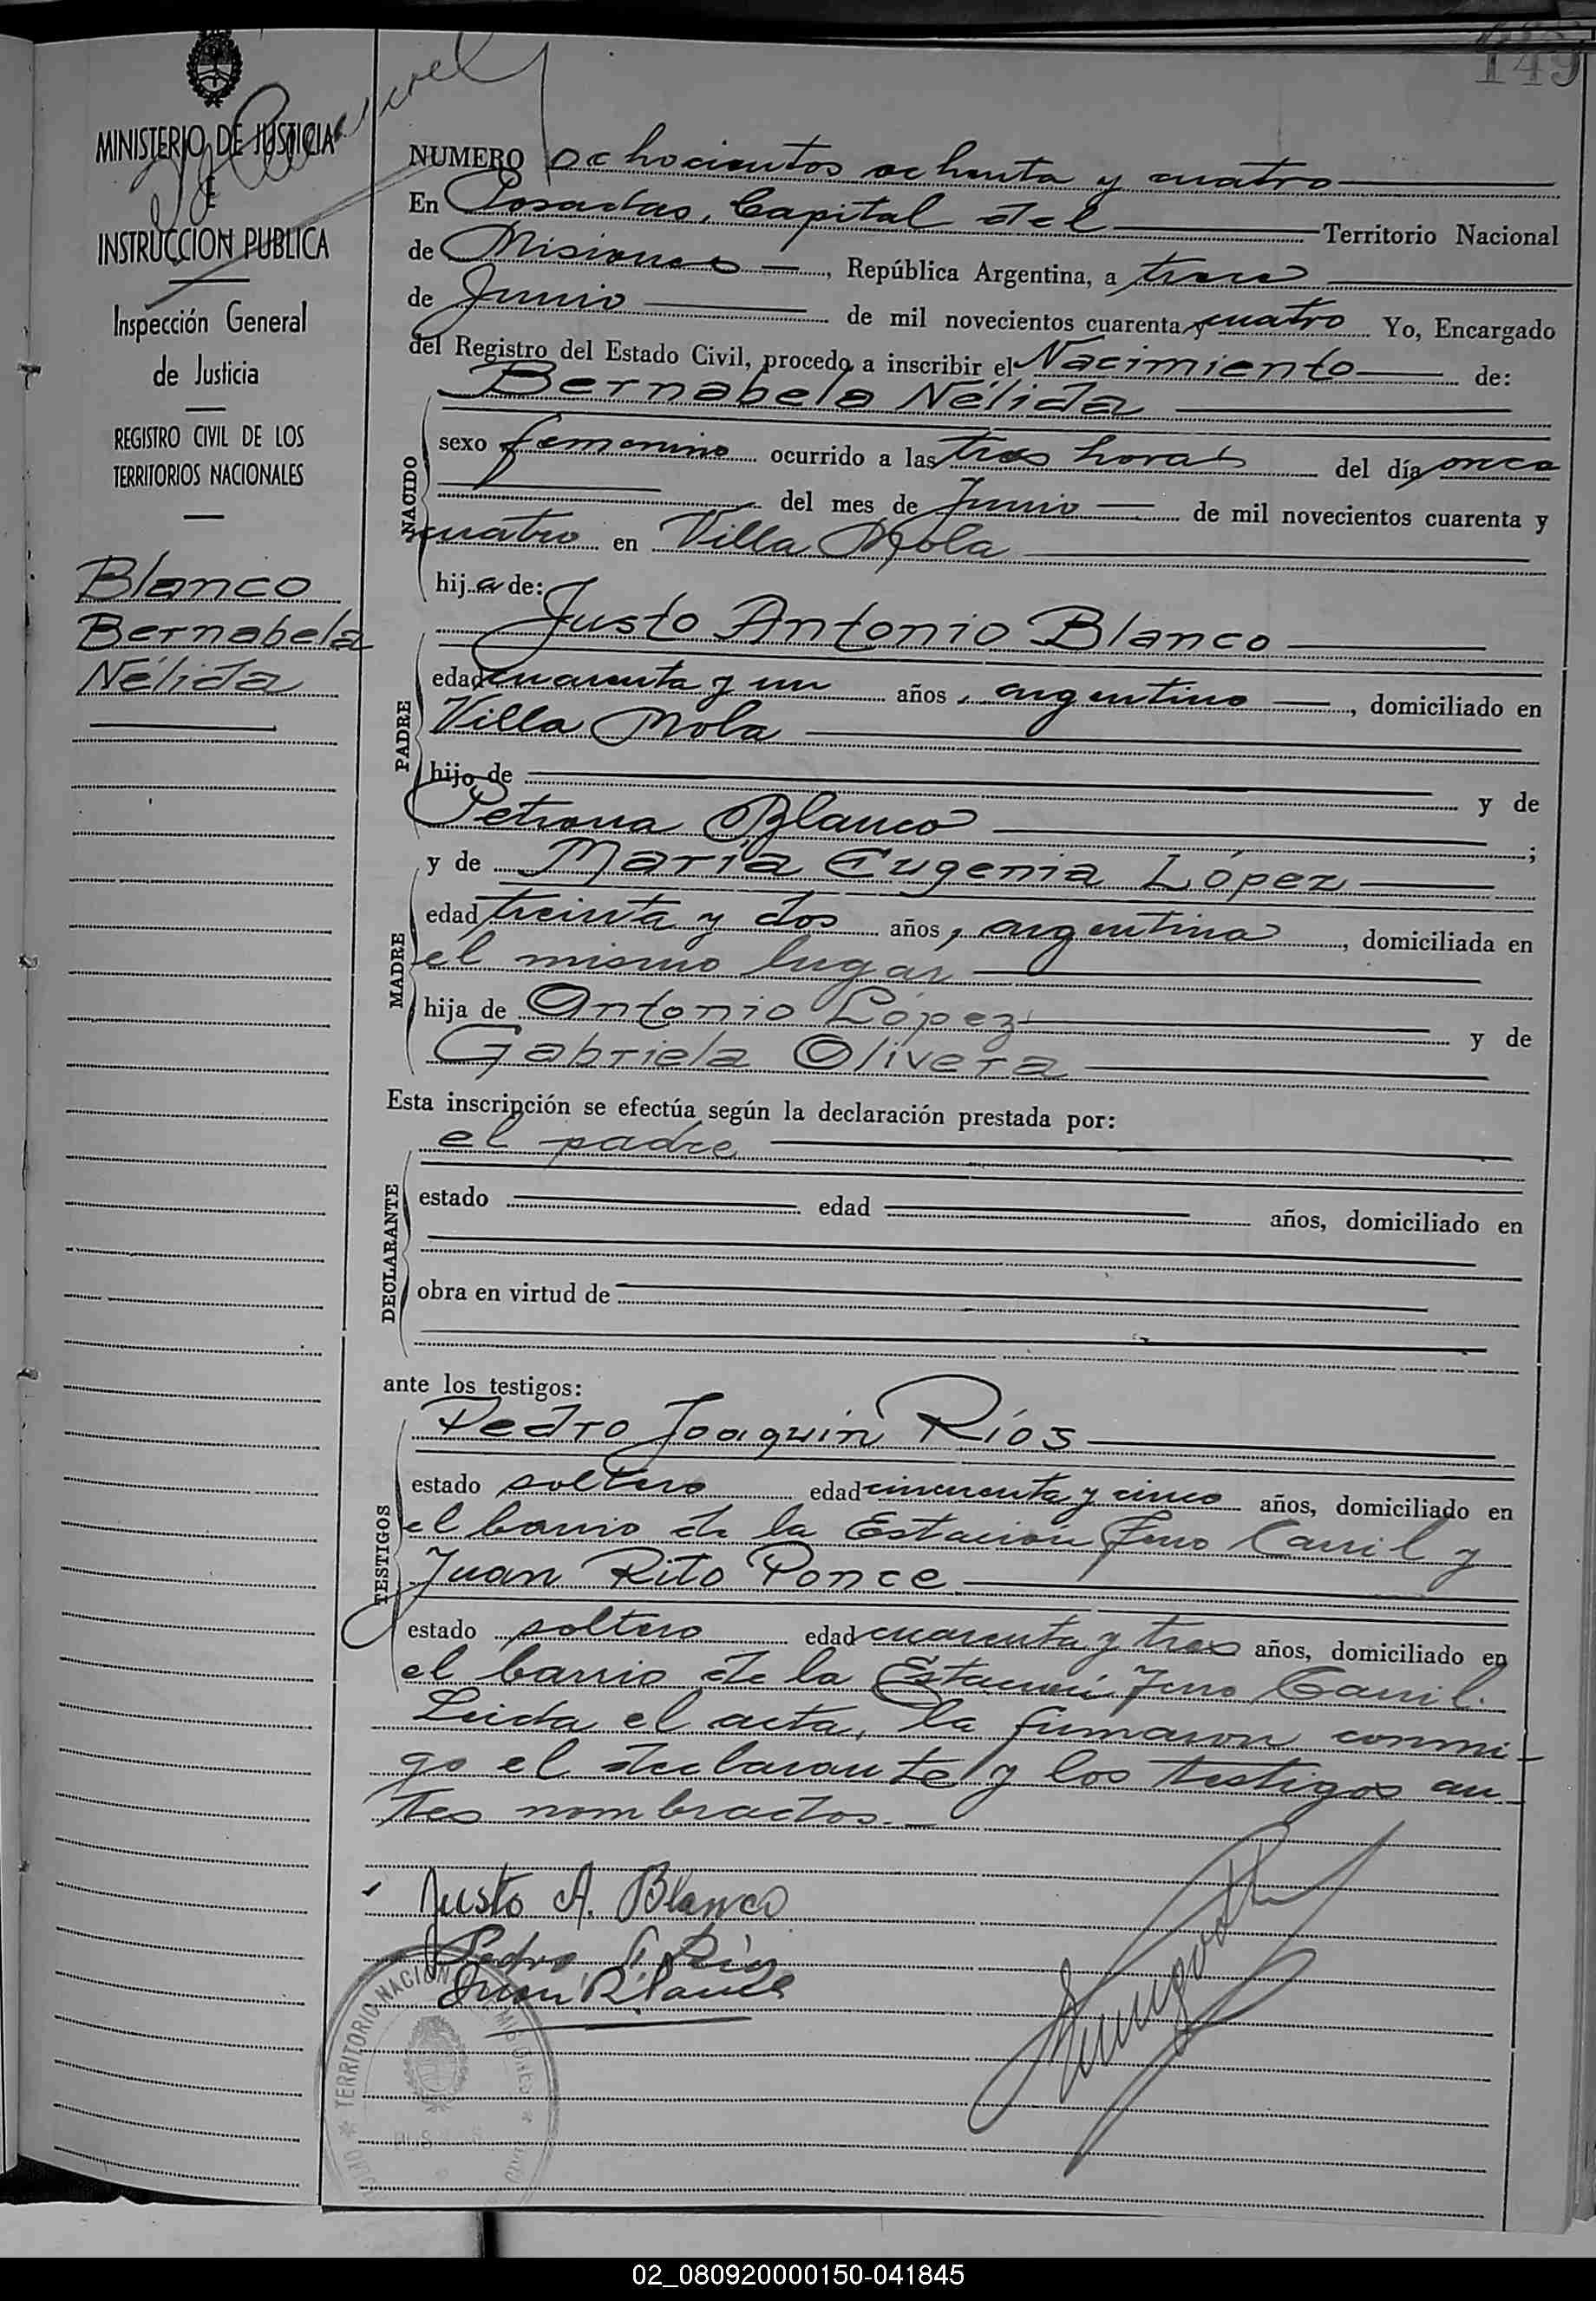 149
MINISTERIO DE JUSTICIA
E
INSTRUCCION PUBLICA
Inspección General
de Justicia
REGISTRO CIVIL DE LOS
TERRITORIOS NACIONALES
Blanco
Bernabela
Nélida
NUMERO ochocientos ochenta y cuatro
En Posadas, Capital del Territorio Nacional
de Misiones, República Argentina, a trece
de Junio de mil novecientos cuarenta y cuatro Yo, Encargado
del Registro del Estado Civil, procedo a inscribir el Nacimiento de:
Bernabela Nélida
NACIDO
sexo femenino ocurrido a las tres horas del día once
del mes de Junio de mil novecientos cuarenta y
cuatro en Villa Mola
hija de:
Justo Antonio Blanco
PADRE
edad cuarenta y un años, argentino, domiciliado en
Villa Mola
hijo de y de
Petrona Blanco ;
y de María Eugenia López
MADRE
edad treinta y dos años, argentina, domiciliada en
el mismo lugar
hija de Antonio López y de
Gabriela Olivera
Esta inscripción se efectúa según la declaración prestada por:
el padre
DECLARANTE
estado edad años, domiciliado en
obra en virtud de
ante los testigos:
Pedro Joaquin Ríos
TESTIGOS
estado soltero edad cincuenta y cinco años, domiciliado en
el barrio de la Estación Ferro Carril y
Juan Rito Ponce
estado soltero edad cuarenta y tres años, domiciliado en
el barrio de la Estación Ferro Carril.
Leida el acta, la firmaron conmi-
go el declarante y los testigos an-
tes nombrados.-
Justo A. Blanco
Pedro J. Ríos
Juan R. Ponce
TERRITORIO NACIONAL MISIONES
02_080920000150-041845